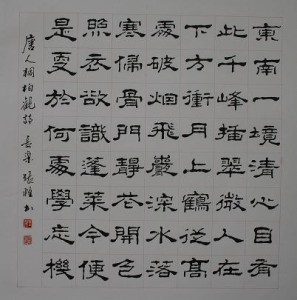 東南一境清心目有
此千峰插翠微人在
下方衝月上鶴從高
處破烟飛巖深水落
寒侵骨門靜花開色
照衣欲識蓬萊今便
是更於何處學忘機
唐人桐柏觀詩 張 書